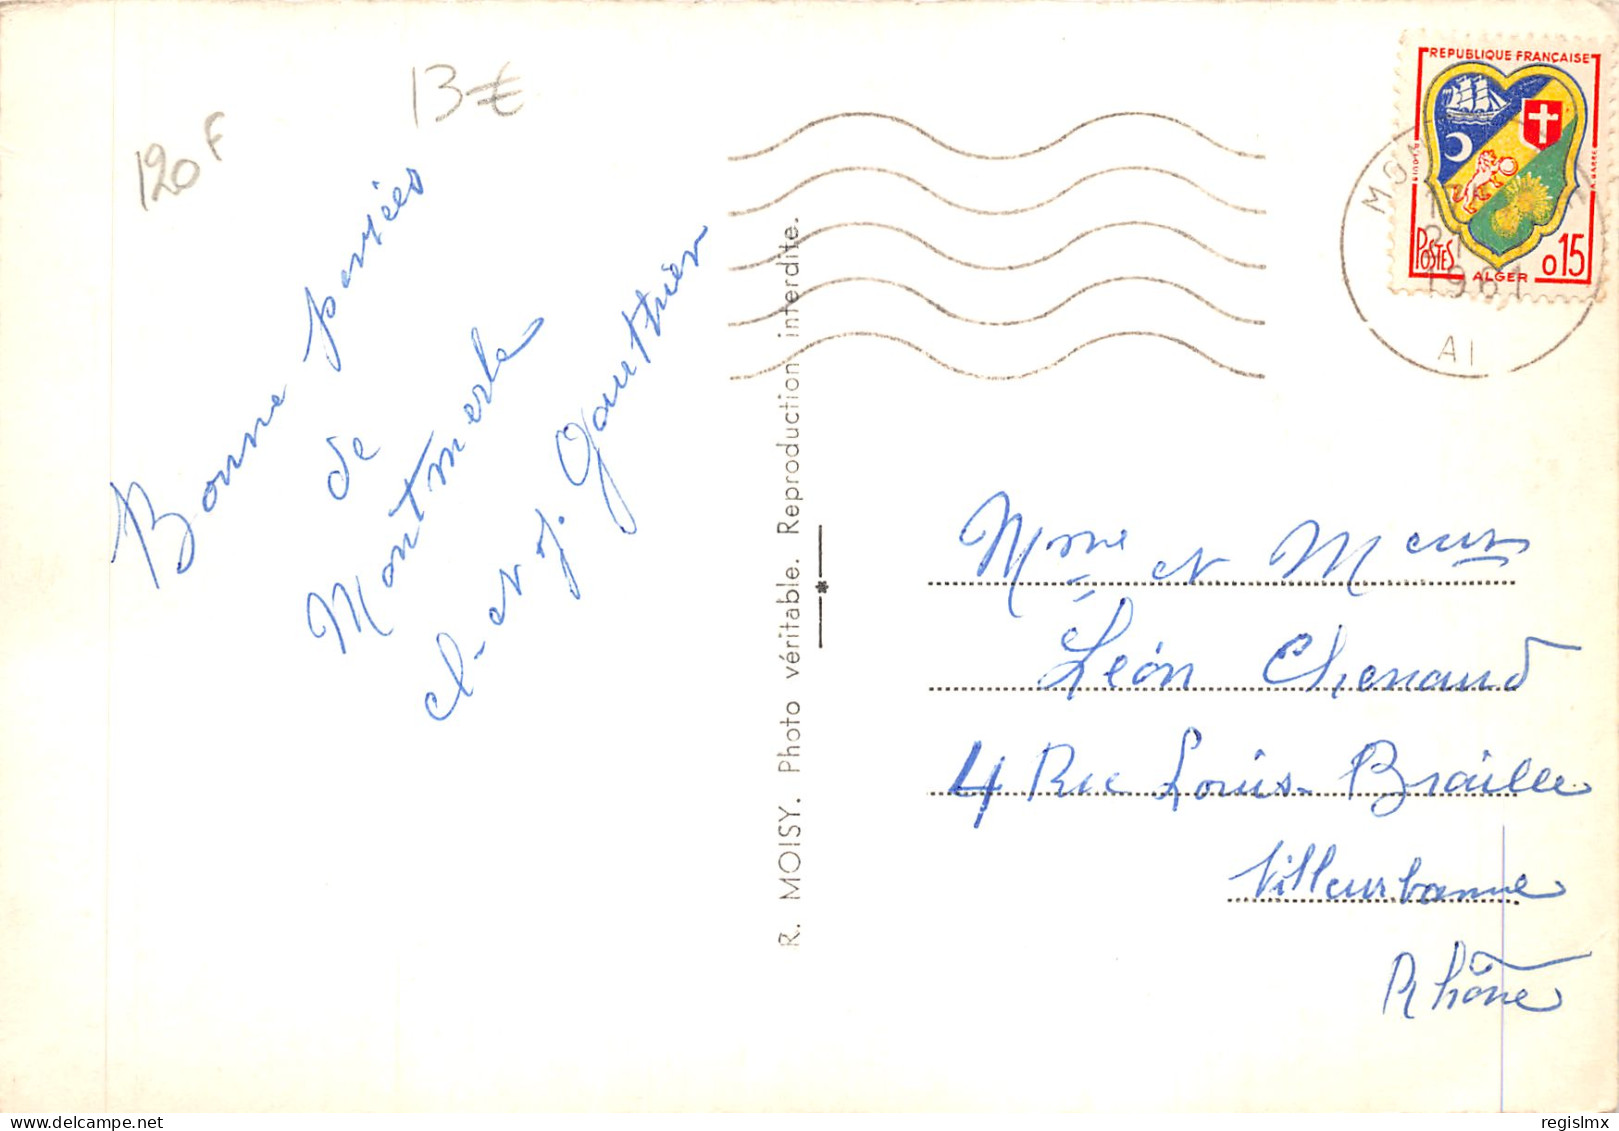 120F
13€
Bonne pensées
de
Montmerle
cl- et J. Gauthier
R. MOISY. Photo véritable. Reproduction interdite.
REPUBLIQUE FRANÇAISE
POSTES
ALGER
0 15
1961
AI
Mme et Meur
Léon Chenaud
4 Rue Louis-Braille
Villeurbanne
Rhône
regislmx